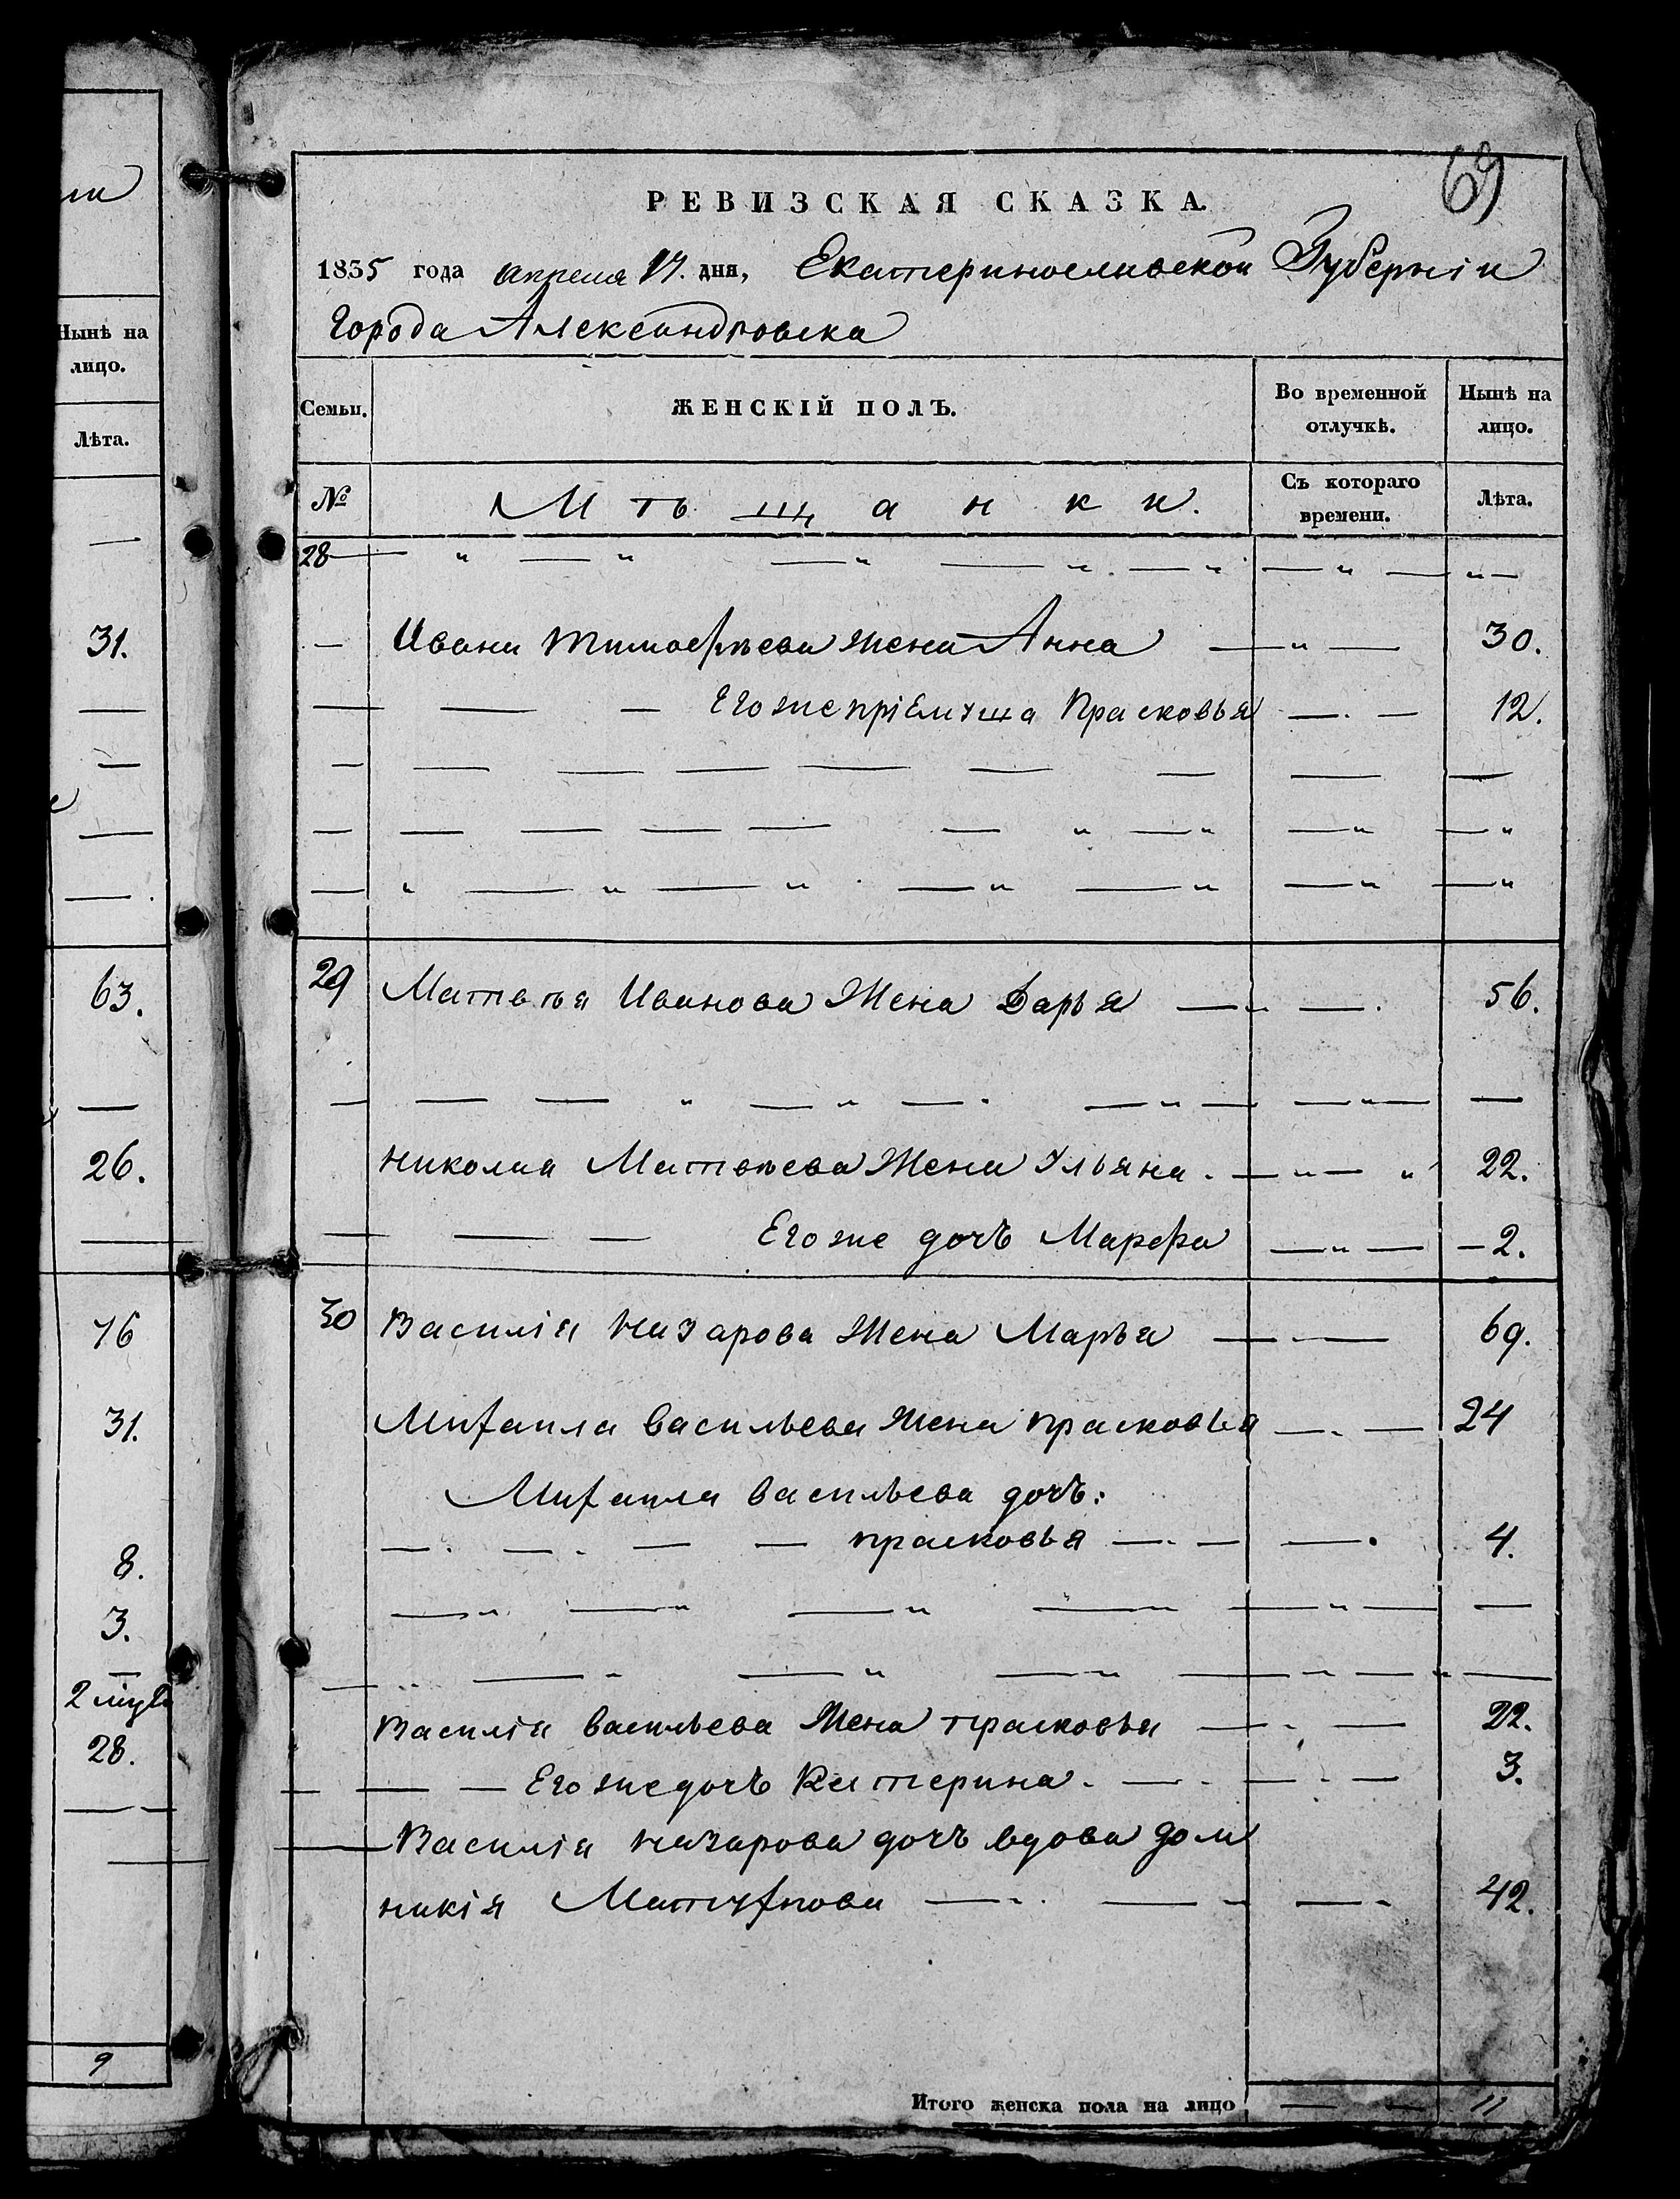 ии
Нынѣ на
лицо.
Лѣта.
—
31.
—
—
—
—
63.
—
26.
—
76
31.
8.
3.
—
28.
—
9
69
РЕВИЗСКАЯ СКАЗКА.
1835 года апреля 17. дня, Екатеринославской Губерніи
Города Александровска
Семьи. ЖЕНСКІЙ ПОЛЪ. Во временной отлучкѣ. Нынѣ на лицо.
№ Мѣщанки. Съ котораго времени. Лѣта.
28 — " — " — " — " — " — " — " —
— Ивана Тимофѣева жена Анна — " — 30.
— — — Его же пріемуша Прасковья — . — 12.
— — — — — — — — — —
— — — — — — " — " — " — "
— " — " — " — " — " — " — "
29 Матвѣя Иванова Жена Дарья — " — . 56.
— — — " — " — . — " — — " — —
Николая Матвѣева Жена Ульяна . — " — " 22.
— — — Его же дочь Марфа — " — — 2.
30 Василія Назарова Жена Марья — - — 69.
Михаила Васильева жена прасковья — . — 24
Михаила Васильева дочь:
— . — . — — прасковья — . — — . 4.
— " . — " — " — " — " — —
— " — " — " — " — " — " —
Василія Васильева Жена прасковья — - — 22.
— — — Его же дочь Катерина . — . — . — 3.
— Василія Назарова дочь вдова дом
никія — " . — " — " 42.
Итого женска пола на лицо — — 11